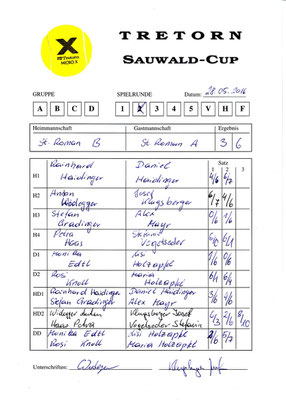 TRETORN
X
TRETORN
MICRO X
SAUWALD-CUP
GRUPPE SPIELRUNDE Datum: 28.05.2016
A B C D 1 2 3 4 5 V H F
Heimmannschaft Gastmannschaft Ergebnis
St. Roman B St. Roman A 3 6
Satz
1 2 3
H1 Reinhard Haidinger Daniel Haidinger 4/6 6/7
H2 Anton Josef Klugsberger 6/7 4/6
H3 Stefan Gradinger Alex Mayr 0/6 1/6
H4 Petra Haas Vogetseder 6/0 6/1
D1 Monika Edtl Sisi Holzapfel 1/6 0/6
D2 Rosi Knoll Maria Holzapfel 6/1 6/4
HD1 Reinhard Haidinger Daniel Haidinger 3/6 4/6
Stefan Gradinger Alex Mayr
HD2 Klugsberger Josef 6/3 2/6 8/10
Haas Petra Vogetseder Stefanie
DD Monika Edtl Sisi Holzapfel 2/6 5/7
Rosi Knoll Maria Holzapfel
Unterschriften: